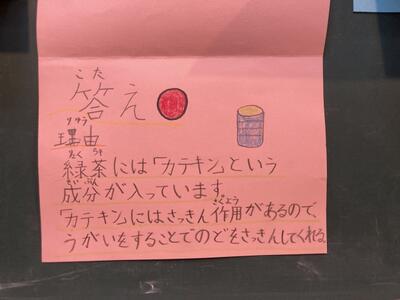 こた
答え
りゆう
理由
りょくちゃ
緑茶には「カテキン」という
せいぶん
成分が入っています。
さよう
「カテキン」にはさっきん作用があるので、
うがいをすることでのどをさっきんしてくれる。